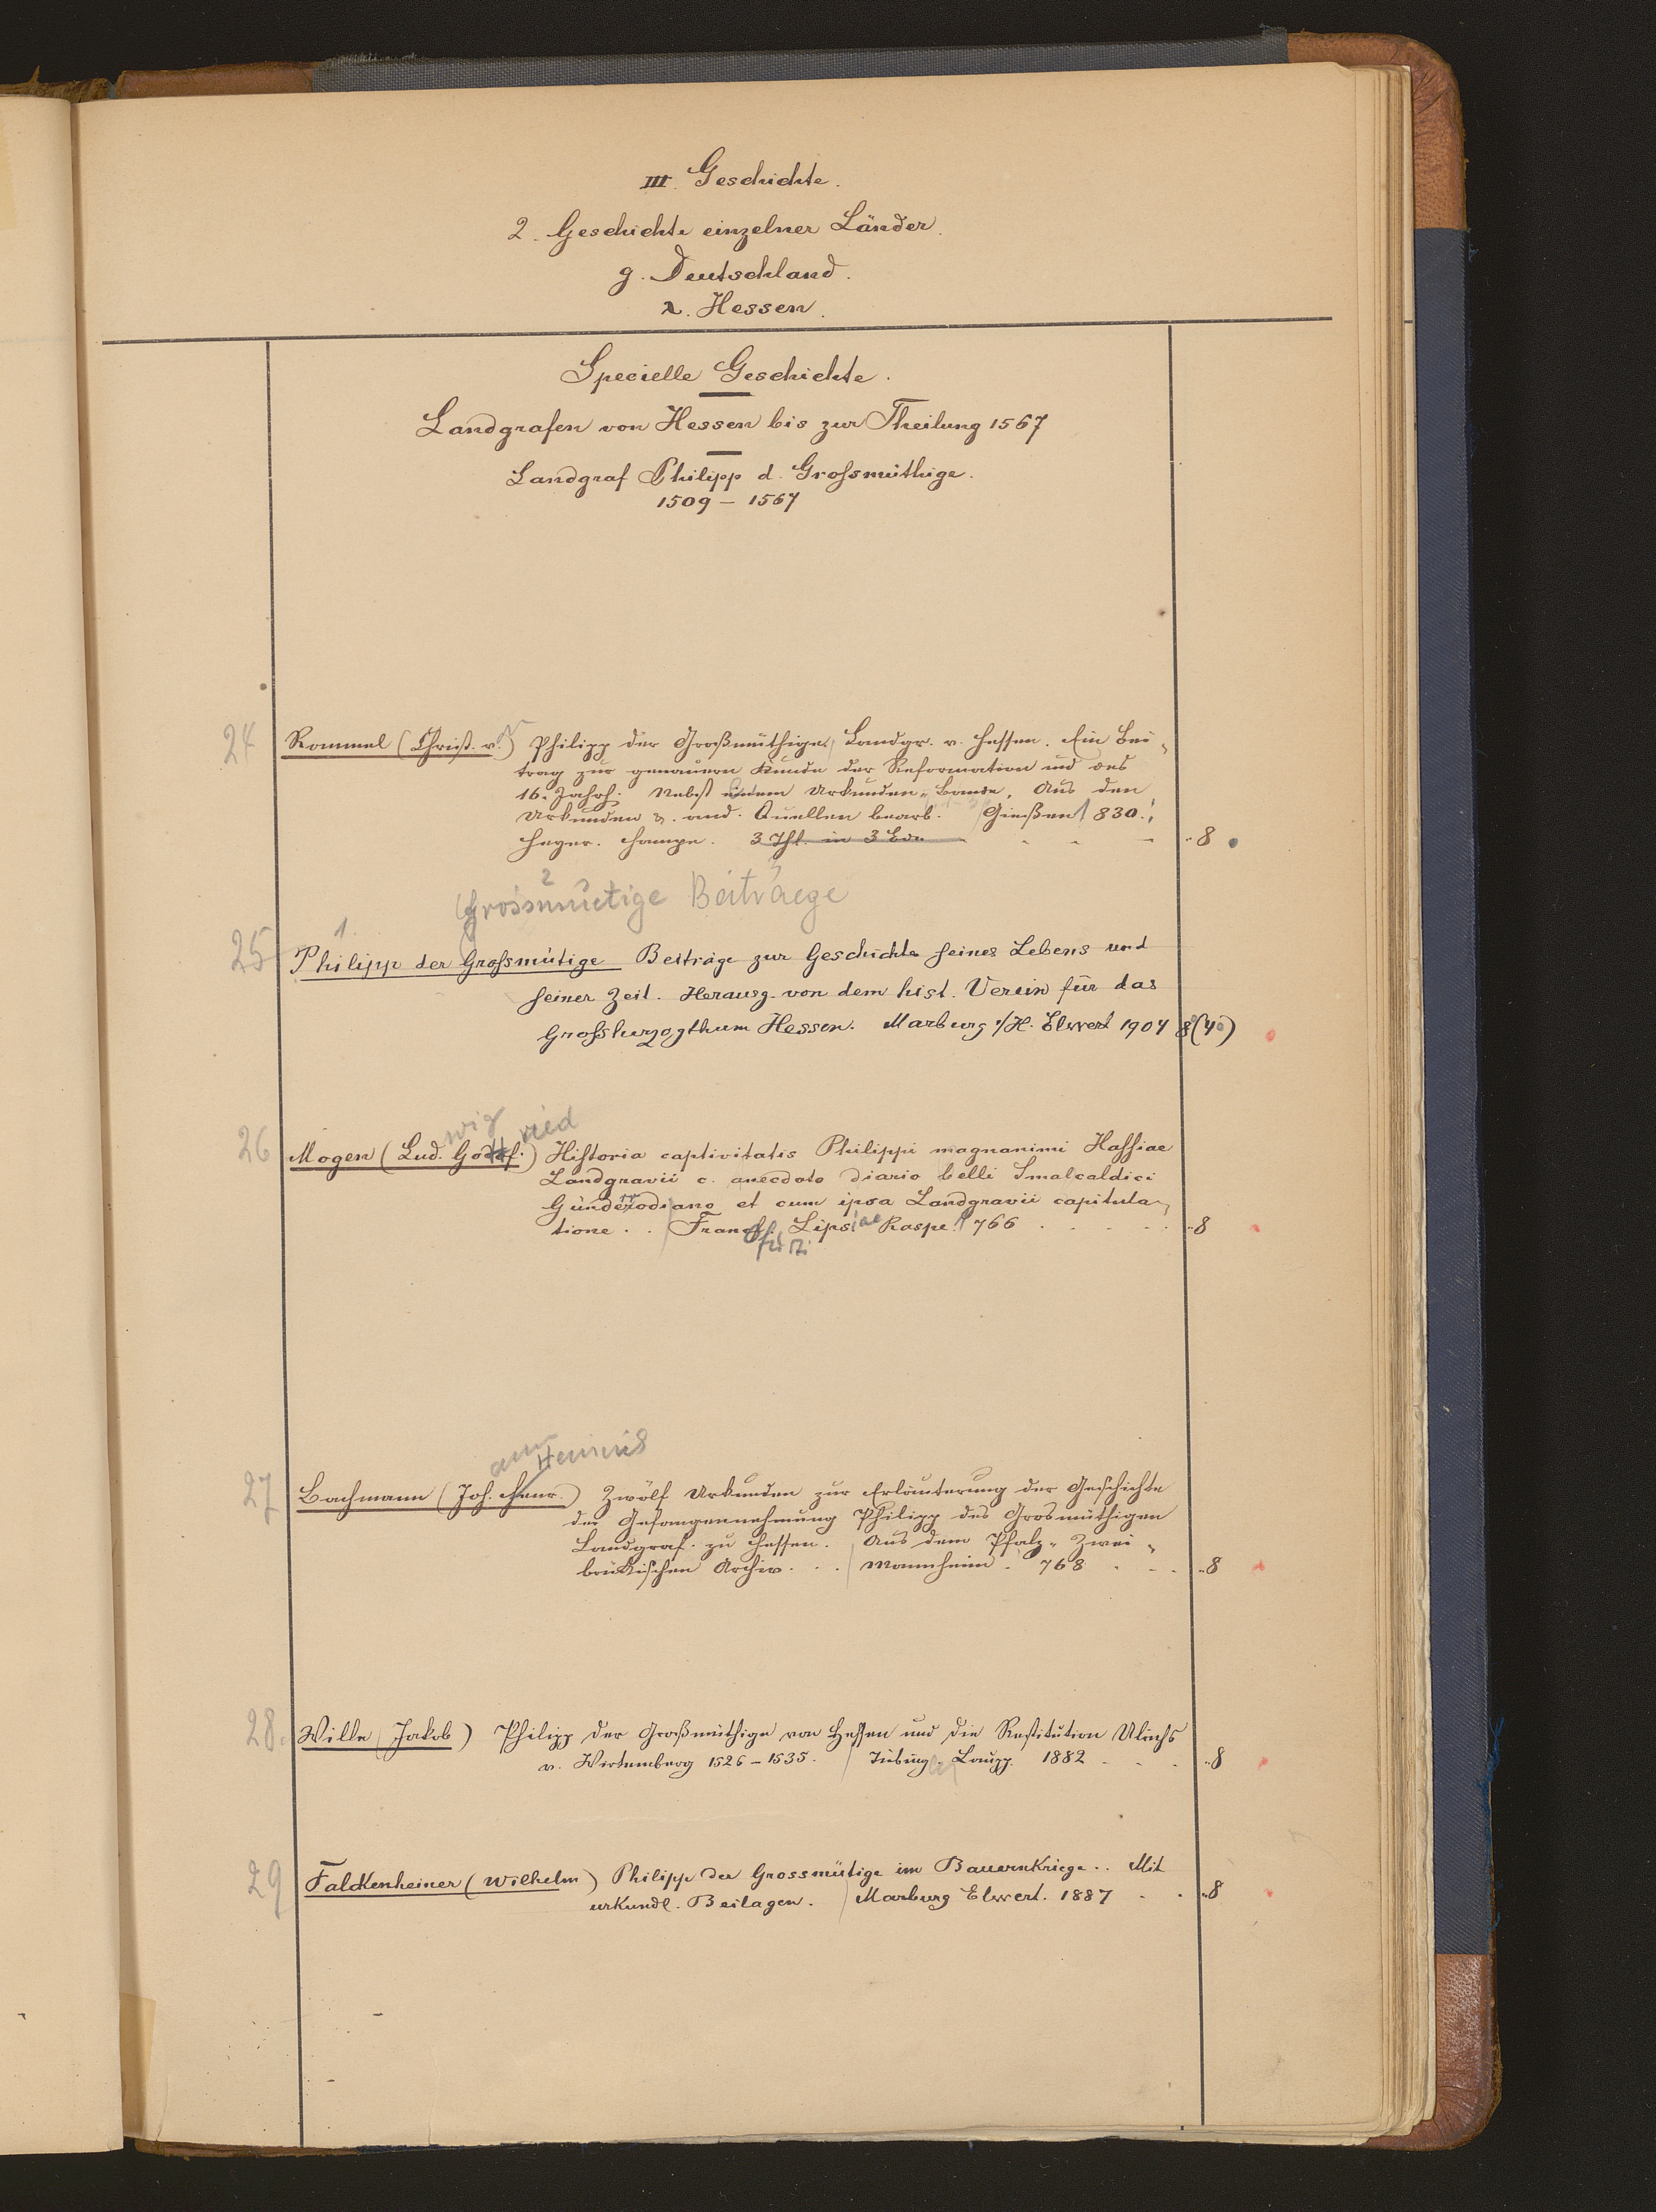 III. Geschichte.
2. Geschichte einzelner Länder.
g. Deutschland.
λ. Hessen.
Specielle Geschichte.
Landgrafen von Hessen bis zur Theilung 1567
Landgraf Philipp d. Grofsmüthige.
1509 – 1567
24 Rommel (Christ. v.) Philipp der Großmüthige, Landgr. v. Hessen. Ein Bei-
trag zur genauern Kunde der Reformation und des
16. Jahrh. Nebst einem Urkunden-Bande. Aus den
Urkunden u. and. Quellen bearb. Gießen 1830.
Heyer. 3 Thl. in 3 Bdn 8
2 3
Grossmütige Beitraege
1.
25 Philipp der Grofsmütige Beiträge zur Geschichte seines Lebens und
seiner Zeit. Herausg. von dem hist. Verein für das
Grofsherzogthum Hessen. Marburg a/H. Elwert 1904 8° (4°)
wig ried
26 Mogen (Lud. Gottf.) Historia captivitatis Philippi magnanimi Hassiae
Landgravii c. anecdoto diario belli Smalcaldici
Günderrodiano et cum ipsa Landgravii capitula-
tione . . Francof. Lipsiae Raspe 1766 8
furti
ann Heinrich
27 Bachmann (Joh. Henr.) Zwölf Urkunden zur Erläuterung der Geschichte
der Gefangennehmung Philipp des Grosmüthigen
Landgraf. zu Hessen. Aus dem Pfalz-Zwei-
brükischen Archiv. . . Mannheim. 768 8
28. Wille (Jakob) Philipp der Großmüthige von Hessen und die Restitution Ulrichs
v. Wirtemberg 1526 – 1535. Tübing. Laupp. 1882 8
29 Falckenheiner (Wilhelm) Philipp der Grossmütige im Bauernkriege . . Mit
urkundl. Beilagen. Marburg Elwert. 1887 8